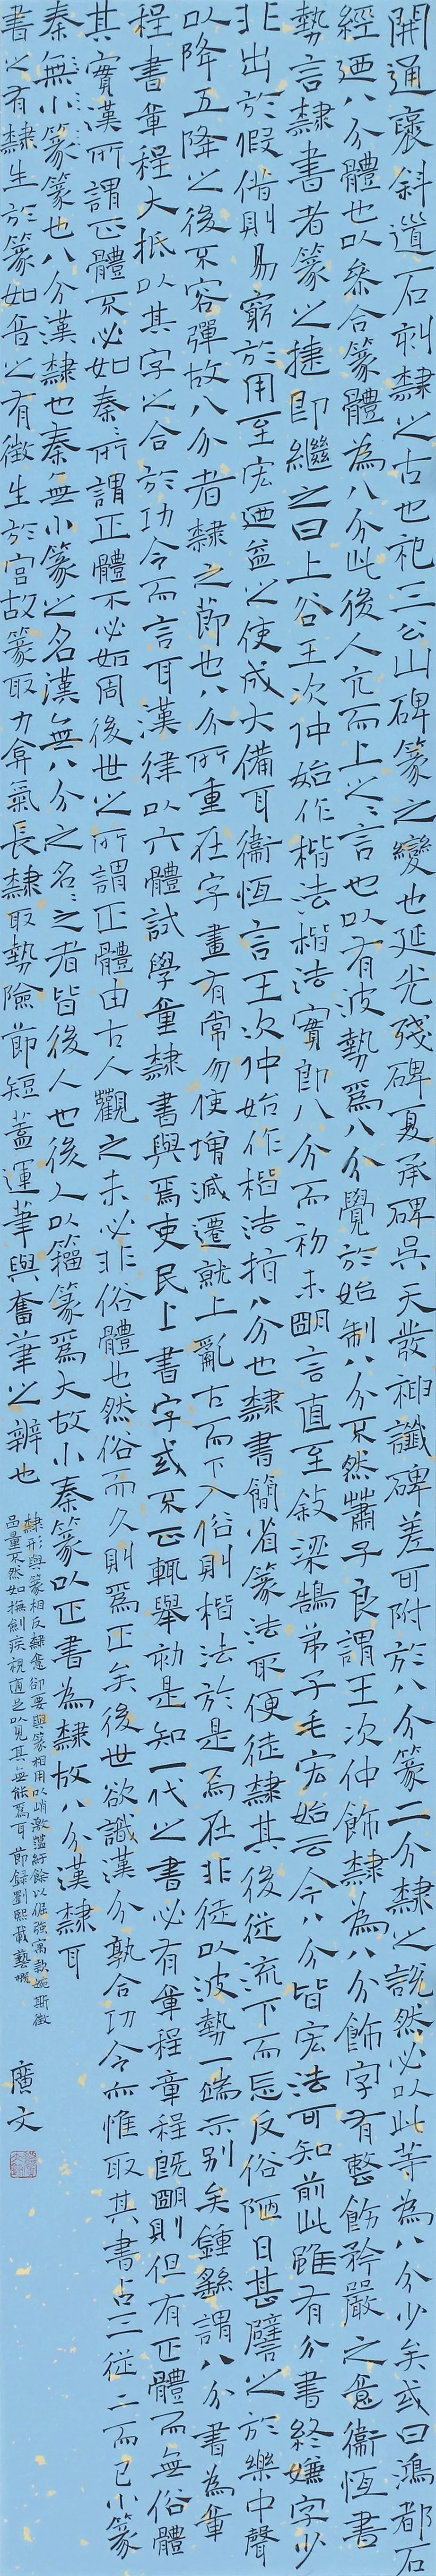 開通褒斜道石刻隸之古也祀三公山碑篆之變也延光殘碑夏承碑吳天發神讖碑差可附於八分篆二分隸之說然必以此等為八分少矣或曰鴻都石
經迺八分體也以參合篆體為八分此後人亢而上之之言也以有波勢為八分覺於始制八分不然蕭子良謂王次仲飾隸為八分飾字有整飭矜嚴之意衞恆書
勢言隸書者篆之捷即繼之曰上谷王次仲始作楷法楷法實即八分而初未朙言直至敍梁鵠弟子毛宏始云今八分皆宏法可知前此雖有分書終嫌字少
非出於假借則易窮於用至宏迺益之使成大備耳衞恆言王次仲始作楷法指八分也隸書簡省篆法取便徒隸其後從流下而忘反俗陋日甚譬之於樂中聲
以降五降之後不容彈故八分者隸之節也八分所重在字畫有常勿使增減遷就上亂古而下入俗則楷法於是焉在非徒以波勢一端示別矣鍾繇謂八分書為章
程書章程大抵以其字之合於功令而言耳漢律以六體試學童隸書與焉吏民上書字或不正輒舉劾是知一代之書必有章程章程既朙則但有正體而無俗體
其實漢所謂正體不必如秦秦所謂正體不必如周後世之所謂正體由古人觀之未必非俗體也然俗而久則為正矣後世欲識漢分孰合功令亦惟取其書占三從二而已小篆
秦篆也八分漢隸也秦無小篆之名漢無八分之名名之者皆後人也後人以籀篆為大故小秦篆以正書為隸故八分漢隸耳
書之有隸生於篆如音之有徵生於宮故篆取力弇氣長隸取勢險節短蓋運筆與奮筆之辨也
隸形與篆相反隸意卻要與篆相用以峭激蘊紆餘以倔強寓款婉斯徵
品量不然如撫劍疾視適足以見其無能為耳 節錄劉熙載藝概
廣文